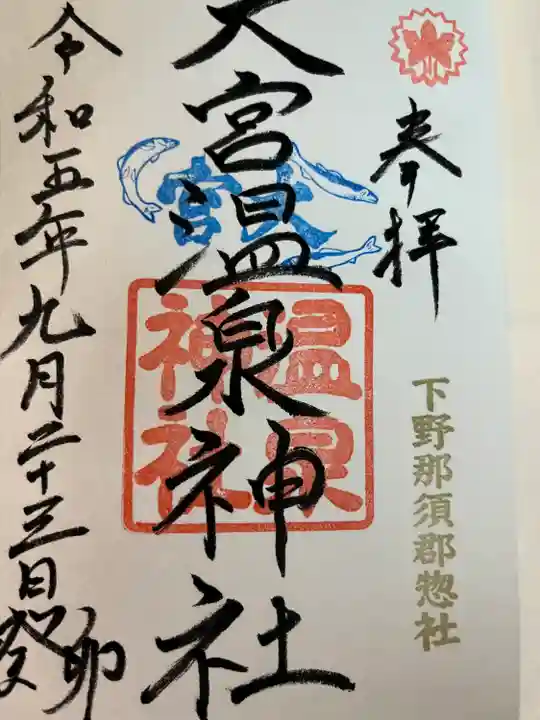 奉拝
下野那須郡惣社
大宮温泉神社
大宮
温泉
神社
令和五年九月二十三日
癸卯